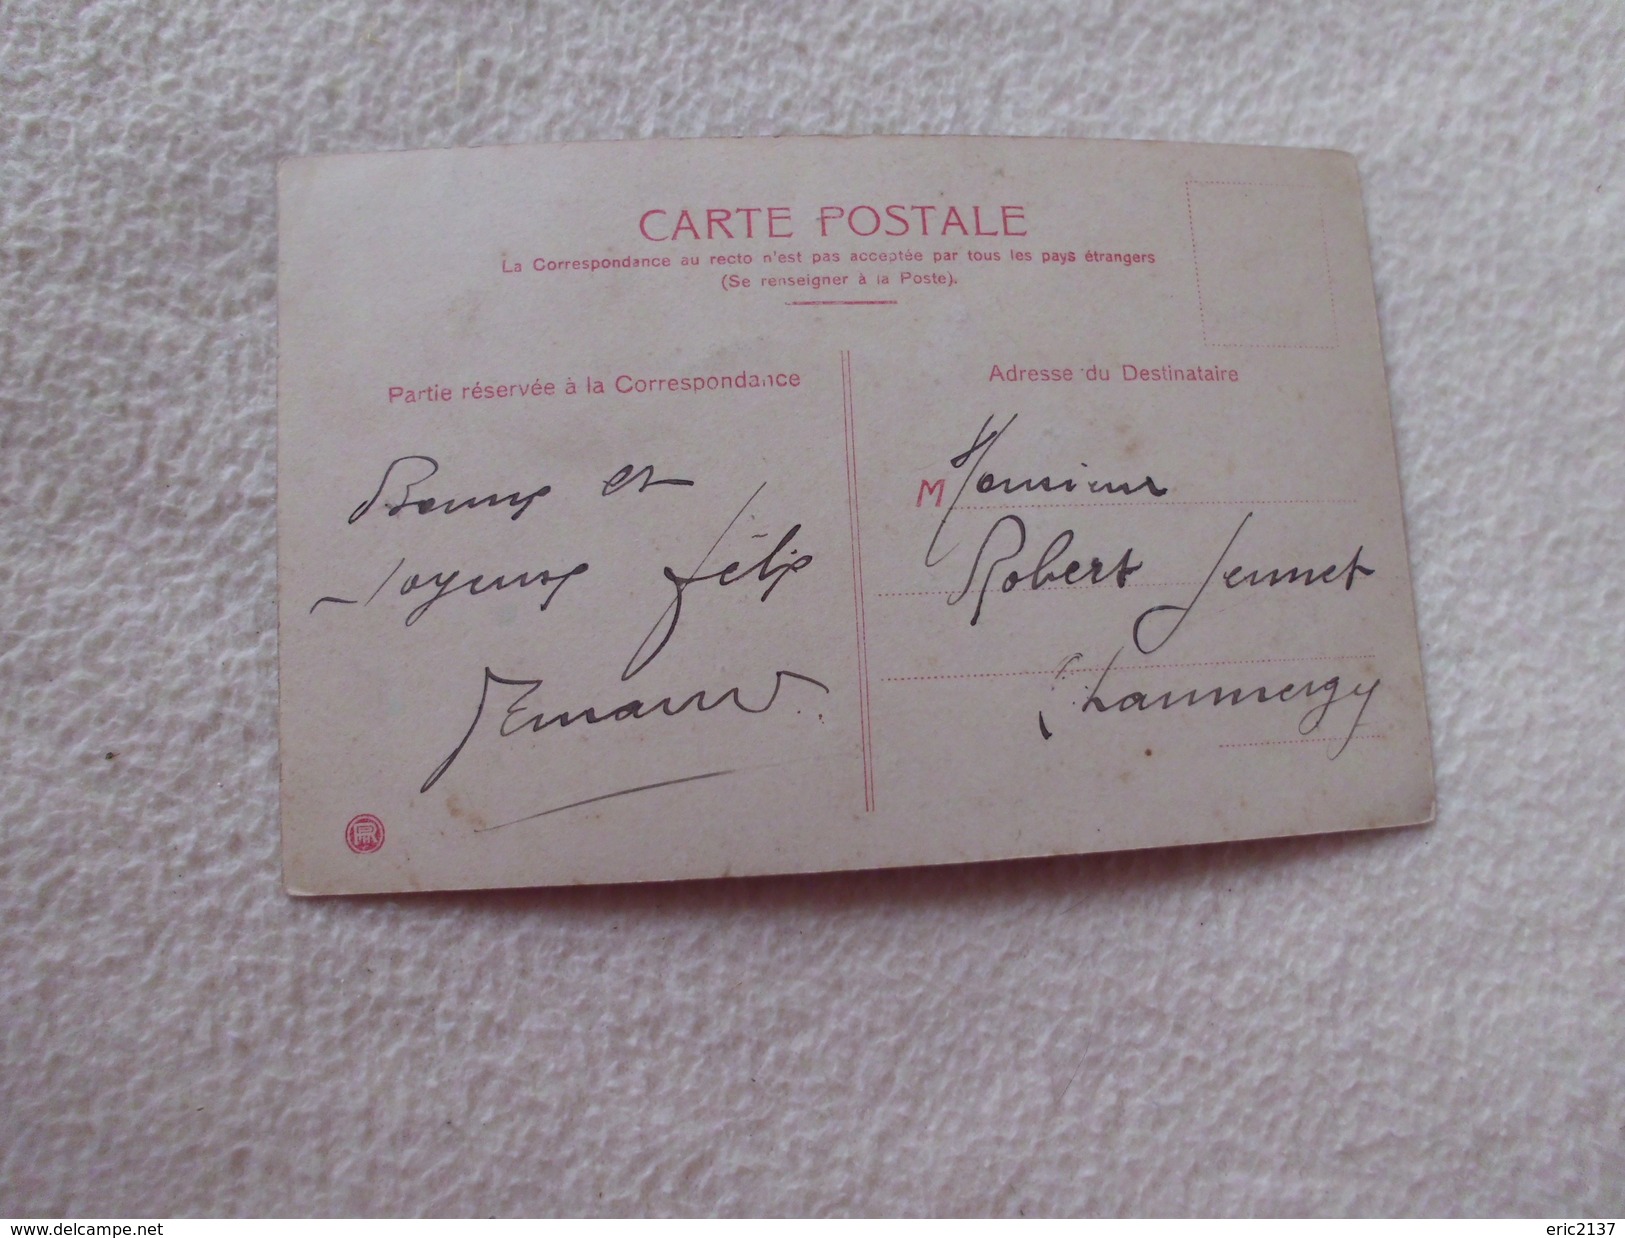 CARTE POSTALE
La Correspondance au recto n'est pas acceptée par tous les pays étrangers
(Se renseigner à la Poste).
Partie réservée à la Correspondance
Bonne et
Joyeuse
Adresse du Destinataire
M Monsieur
Robert Jeunet
Chaumergy
www.delcampe.net
eric2137